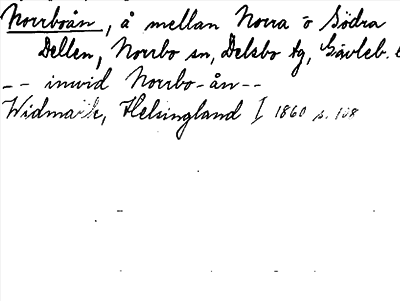 Norrboån, å mellan Norra o Södra
Dellen, Norrbo sn, Delsbo tg, Gävleb. l
-- invid Norrbo-ån--
Widmark, Helsingland I 1860 s. 108